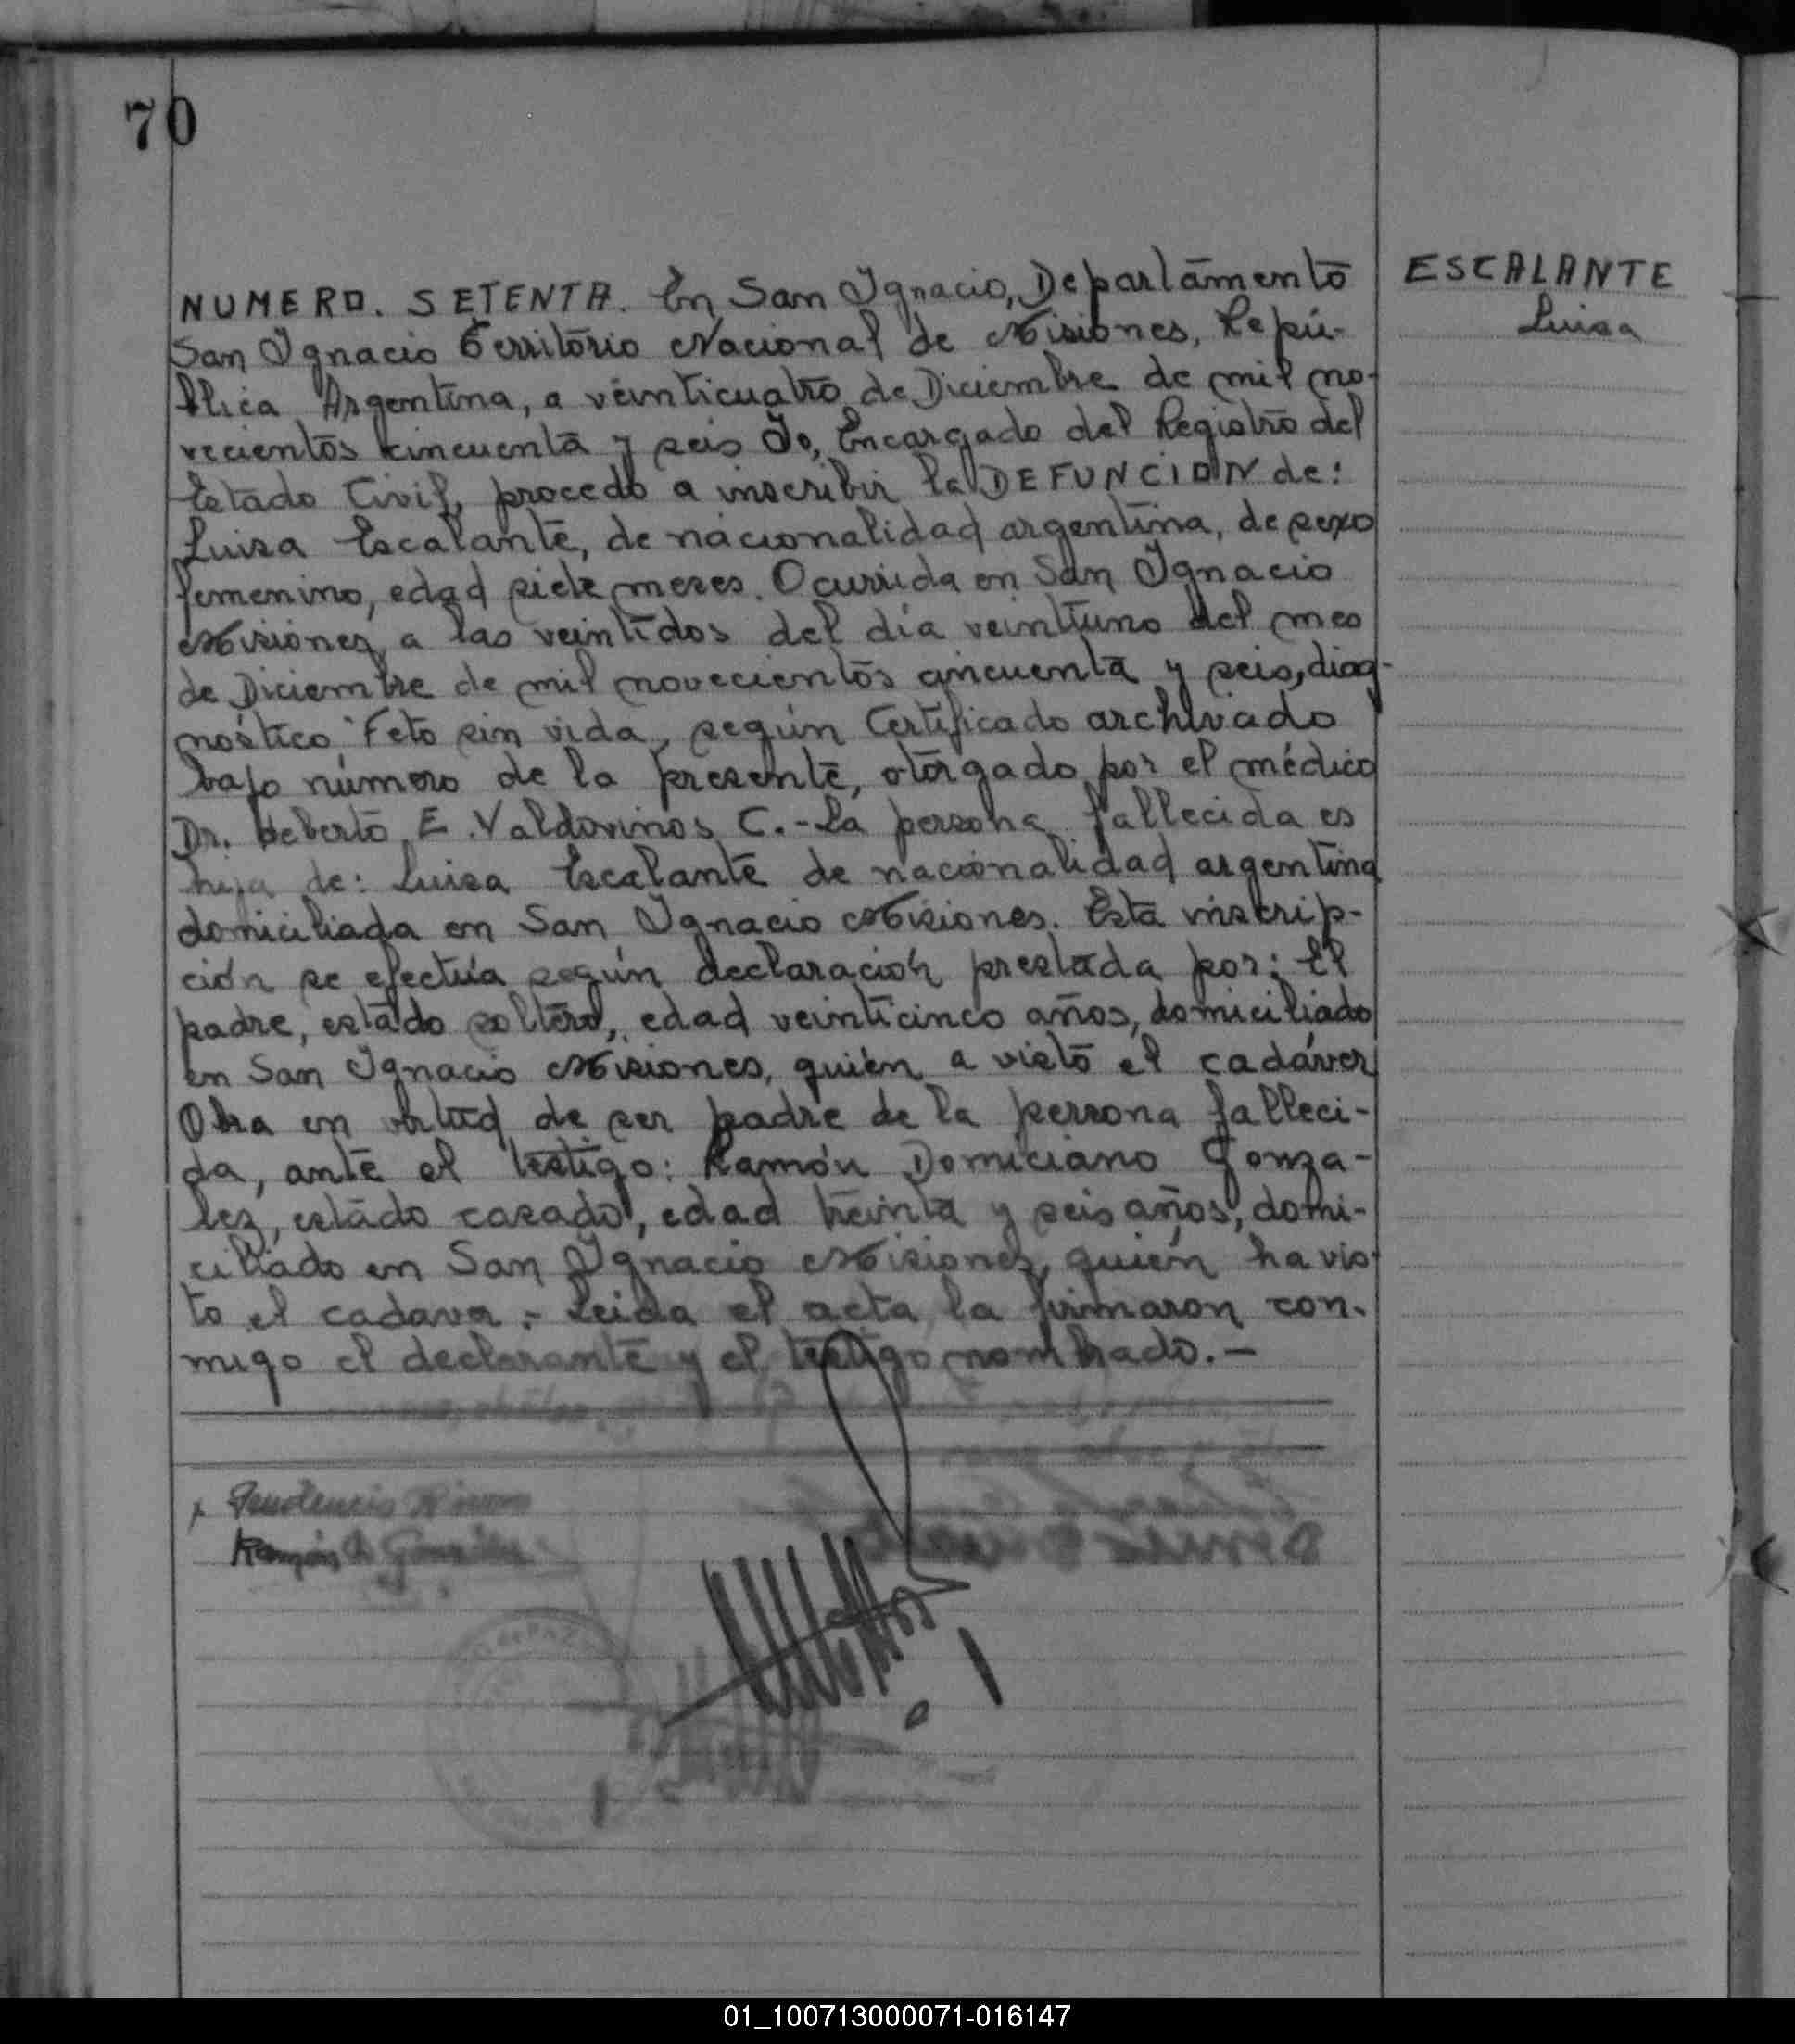 70
NUMERO. SETENTA. En San Ignacio, Departamento
San Ignacio Territorio Nacional de Misiones, Repú-
blica Argentina, a veinticuatro de Diciembre de mil no-
vecientos cincuenta y seis Yo, Encargado del Registro del
Estado Civil, procedo a inscribir la DEFUNCION de:
Luisa Escalante, de nacionalidad argentina, de sexo
femenino, edad siete meses. Ocurrida en San Ignacio
Misiones, a las veintidos del día veintiuno del mes
de Diciembre de mil novecientos cincuenta y seis, diag-
nóstico Feto sin vida, según Certificado archivado
bajo número de la presente, otorgado por el médico
Dr. Heberto E. Valdovinos C.-La persona fallecida es
hija de: Luisa Escalante de nacionalidad argentina
domiciliada en San Ignacio Misiones. Esta inscrip-
ción se efectúa según declaración prestada por: El
padre, estado soltero, edad veinticinco años, domiciliado
en San Ignacio Misiones, quién a visto el cadáver
Obra en virtud de ser padre de la persona falleci-
da, ante el testigo: Ramón Domiciano Gonza-
lez, estado casado, edad treinta y seis años, domi-
ciliado en San Ignacio Misiones, quién ha vis-
to el cadaver.- Leida el acta la firmaron con-
migo el declarante y el testigo nombrado.-
Ramón D. González
ESCALANTE
Luisa
01_100713000071-016147